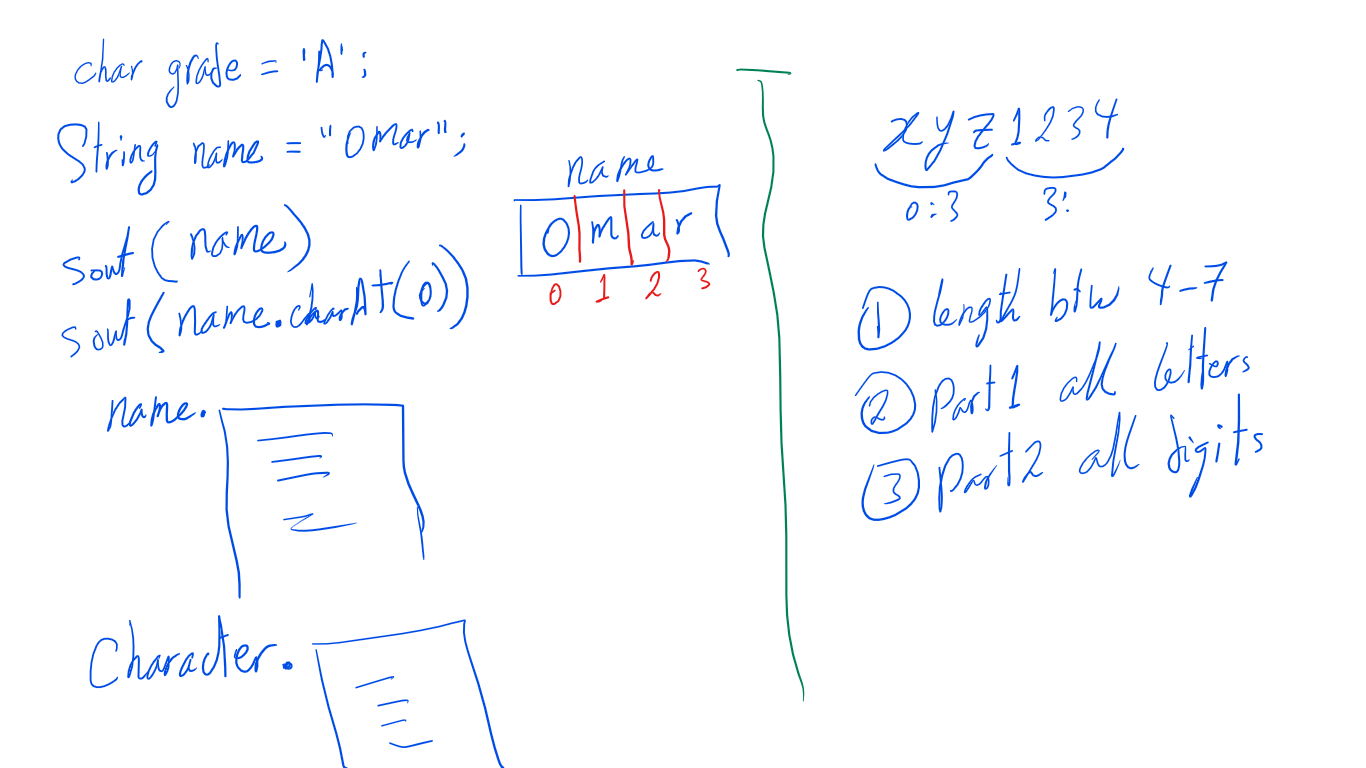 char grade = 'A';
String name = "Omar";
sout(name)
sout(name.charAt(0))
name
O m a r
0 1 2 3
name.
Character.
xyz1234
0:3 3:
① length btw 4-7
② Part1 all letters
③ Part2 all digits